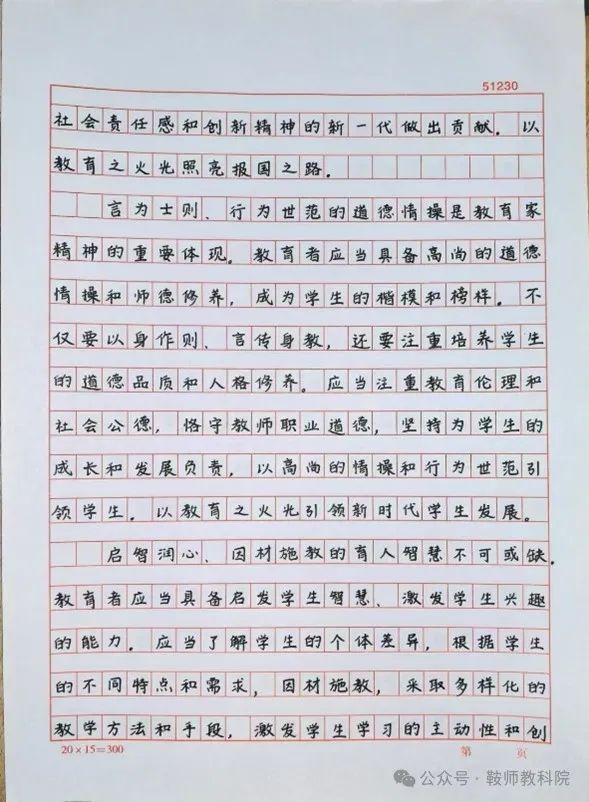 51230
社会责任感和创新精神的新一代做出贡献．以
教育之火光照亮报国之路．
言为士则、行为世范的道德情操是教育家
精神的重要体现。教育者应当具备高尚的道德
情操和师德修养，成为学生的楷模和榜样．不
仅要以身作则、言传身教，还要注重培养学生
的道德品质和人格修养．应当注重教育伦理和
社会公德，恪守教师职业道德，坚持为学生的
成长和发展负责，以高尚的情操和行为世范引
领学生．以教育之火光引领新时代学生发展。
启智润心、因材施教的育人智慧不可或缺．
教育者应当具备启发学生智慧、激发学生兴趣
的能力．应当了解学生的个体差异，根据学生
的不同特点和需求，因材施教，采取多样化的
教学方法和手段，激发学生学习的主动性和创
20×15=300
第 页
公众号·鞍师教科院